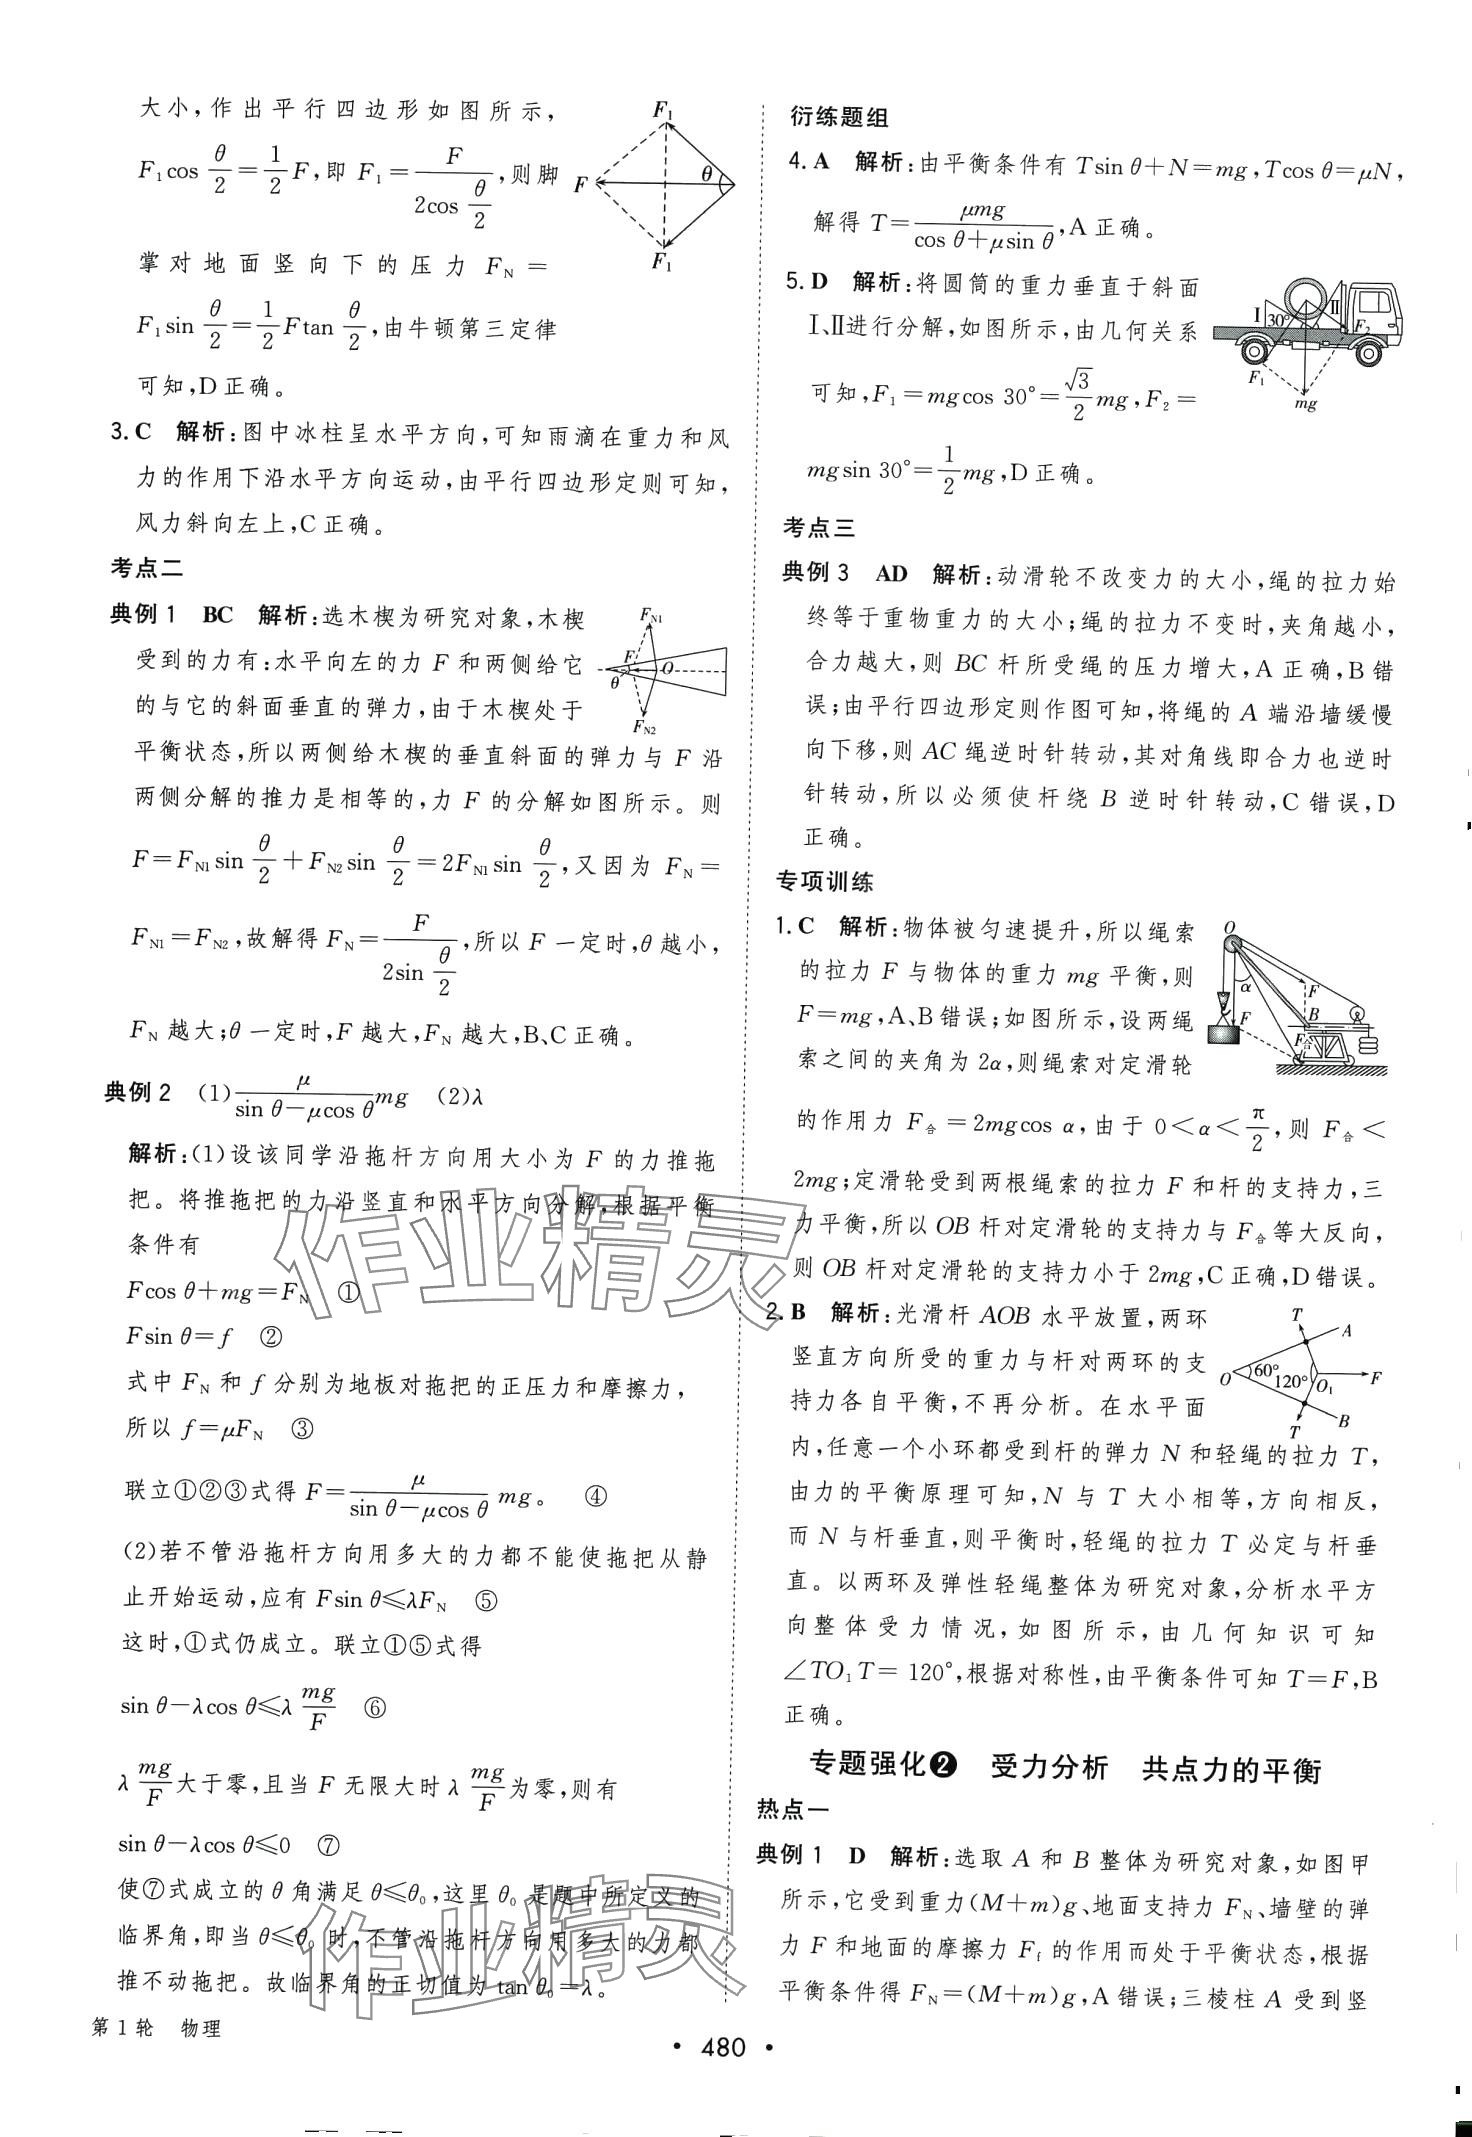 大小,作出平行四边形如图所示,
F₁cos θ/2=1/2F,即 F₁=F/(2cos θ/2),则脚
掌对地面竖向下的压力 F_N=
F₁sin θ/2=1/2Ftan θ/2,由牛顿第三定律
可知,D正确。
F₁
F
θ
F₁
3.C 解析:图中冰柱呈水平方向,可知雨滴在重力和风
力的作用下沿水平方向运动,由平行四边形定则可知,
风力斜向左上,C正确。
考点二
典例1 BC 解析:选木楔为研究对象,木楔
受到的力有:水平向左的力 F 和两侧给它
的与它的斜面垂直的弹力,由于木楔处于
平衡状态,所以两侧给木楔的垂直斜面的弹力与 F 沿
两侧分解的推力是相等的,力 F 的分解如图所示。则
F=F_N1sin θ/2+F_N2sin θ/2=2F_N1sin θ/2,又因为 F_N=
F_N1=F_N2,故解得 F_N=F/(2sin θ/2),所以 F 一定时,θ越小,
F_N 越大;θ一定时,F 越大,F_N 越大,B、C正确。
F_N1
F
O
θ
F_N2
典例2 (1)μ/(sin θ-μcos θ)mg (2)λ
解析:(1)设该同学沿拖杆方向用大小为 F 的力推拖
把。将推拖把的力沿竖直和水平方向分解,根据平衡
条件有
Fcos θ+mg=F_N ①
Fsin θ=f ②
式中 F_N 和 f 分别为地板对拖把的正压力和摩擦力,
所以 f=μF_N ③
联立①②③式得 F=μ/(sin θ-μcos θ) mg。 ④
(2)若不管沿拖杆方向用多大的力都不能使拖把从静
止开始运动,应有 Fsin θ≤λF_N ⑤
这时,①式仍成立。联立①⑤式得
sin θ-λcos θ≤λ mg/F ⑥
λ mg/F大于零,且当 F 无限大时λ mg/F为零,则有
sin θ-λcos θ≤0 ⑦
使⑦式成立的 θ 角满足 θ≤θ₀,这里 θ₀ 是题中所定义的
临界角,即当 θ≤θ₀ 时,不管沿拖杆方向用多大的力都
推不动拖把。故临界角的正切值为 tan θ₀=λ。
衍练题组
4.A 解析:由平衡条件有 Tsin θ+N=mg,Tcos θ=μN,
解得 T=μmg/(cos θ+μsin θ),A正确。
5.D 解析:将圆筒的重力垂直于斜面
Ⅰ、Ⅱ进行分解,如图所示,由几何关系
可知,F₁=mgcos 30°=√3/2mg,F₂=
mgsin 30°=1/2mg,D正确。
Ⅰ
30°
Ⅱ
F₂
F₁
mg
考点三
典例3 AD 解析:动滑轮不改变力的大小,绳的拉力始
终等于重物重力的大小;绳的拉力不变时,夹角越小,
合力越大,则 BC 杆所受绳的压力增大,A正确,B错
误;由平行四边形定则作图可知,将绳的 A 端沿墙缓慢
向下移,则 AC 绳逆时针转动,其对角线即合力也逆时
针转动,所以必须使杆绕 B 逆时针转动,C错误,D
正确。
专项训练
1.C 解析:物体被匀速提升,所以绳索
的拉力 F 与物体的重力 mg 平衡,则
F=mg,A、B错误;如图所示,设两绳
索之间的夹角为 2α,则绳索对定滑轮
的作用力 F合=2mgcos α,由于 0<α<π/2,则 F合<
2mg;定滑轮受到两根绳索的拉力 F 和杆的支持力,三
力平衡,所以 OB 杆对定滑轮的支持力与 F合等大反向,
则 OB 杆对定滑轮的支持力小于 2mg,C正确,D错误。
O
α
F
F
B
F合
2.B 解析:光滑杆 AOB 水平放置,两环
竖直方向所受的重力与杆对两环的支
持力各自平衡,不再分析。在水平面
内,任意一个小环都受到杆的弹力 N 和轻绳的拉力 T,
由力的平衡原理可知,N 与 T 大小相等,方向相反,
而 N 与杆垂直,则平衡时,轻绳的拉力 T 必定与杆垂
直。以两环及弹性轻绳整体为研究对象,分析水平方
向整体受力情况,如图所示,由几何知识可知
∠TO₁T=120°,根据对称性,由平衡条件可知 T=F,B
正确。
T
A
O
60°
120°
O₁
F
T
B
专题强化❷ 受力分析 共点力的平衡
热点一
典例1 D 解析:选取 A 和 B 整体为研究对象,如图甲
所示,它受到重力(M+m)g、地面支持力 F_N、墙壁的弹
力 F 和地面的摩擦力 F_f 的作用而处于平衡状态,根据
平衡条件得 F_N=(M+m)g,A错误;三棱柱 A 受到竖
作业精灵
作业精灵
第1轮 物理
• 480 •